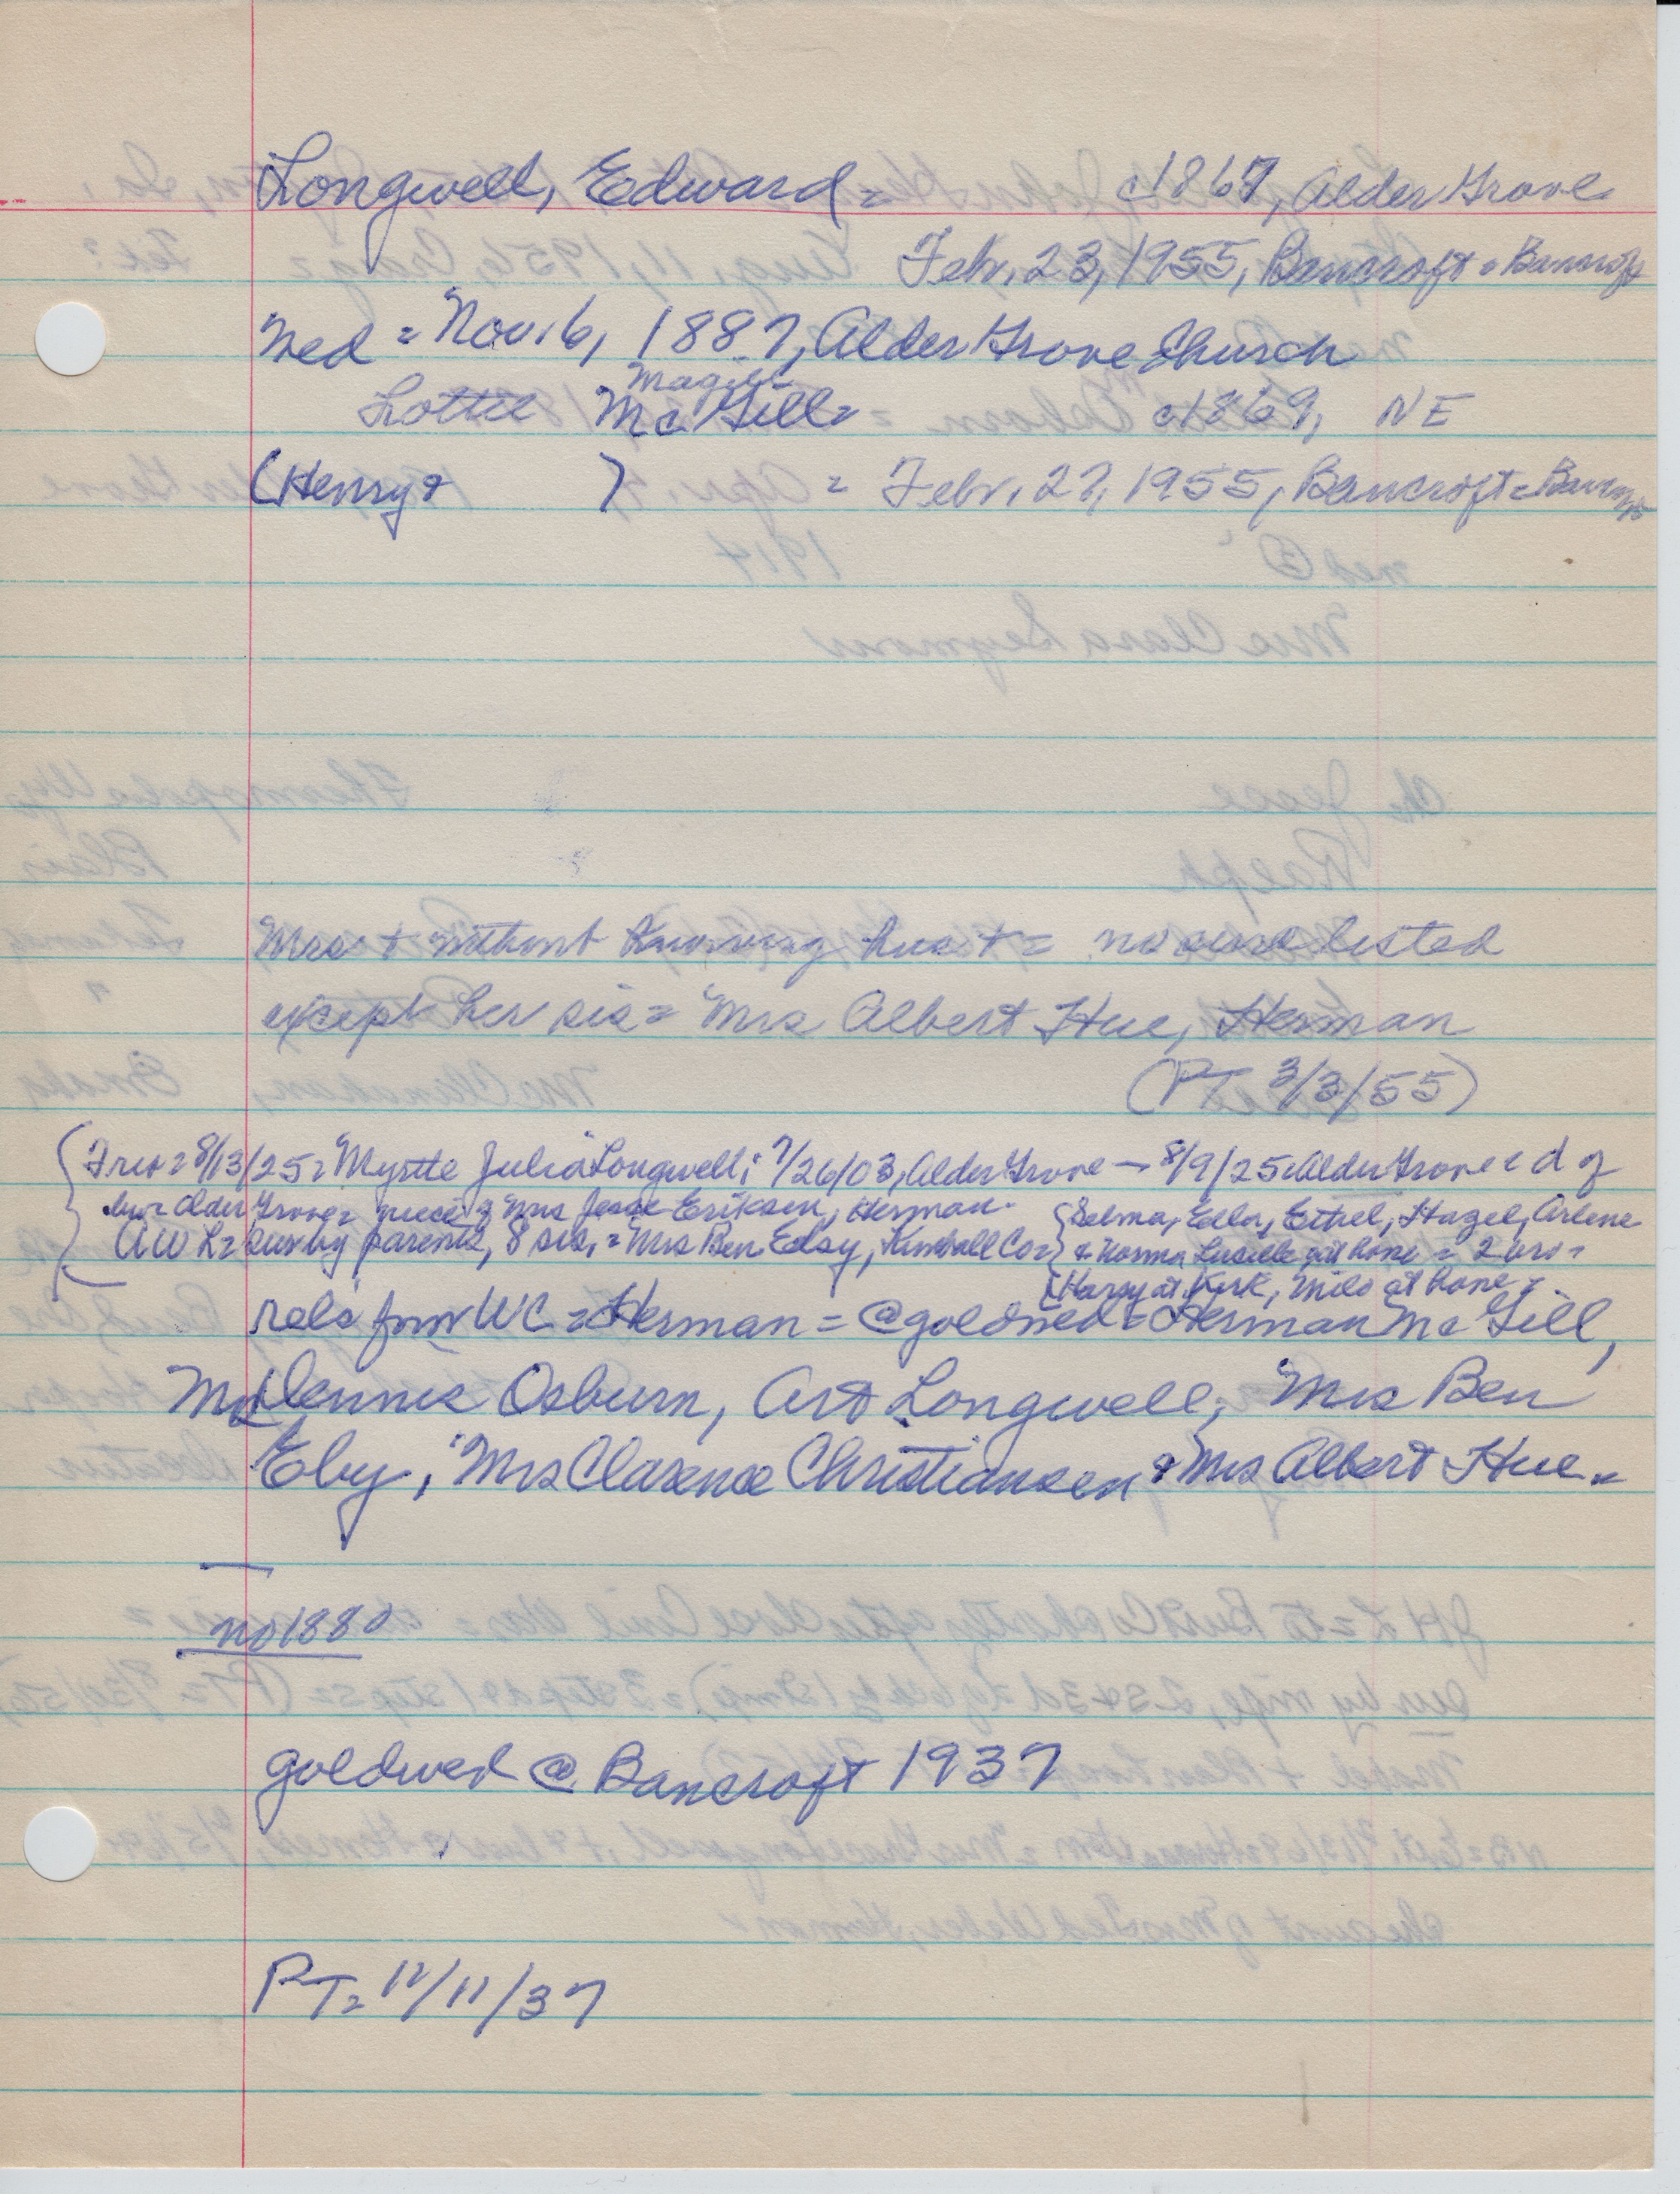 Longwell, Edward = c1867, Alder Grove
Feb. 23, 1955, Bancroft = Bancroft
Med = Nov. 6, 1887, Alder Grove Church
Magill
Lottie McGill = c1869, NE
(Henry & ) = Febr. 27, 1955, Bancroft = Bancroft
Mrs + without knowing hus + = no surv listed
except her sis = "Mrs Albert Hue, Herman
(PT 3/3/55)
8/13/25 = Myrtle Julia Longwell; 7/26/03, Alder Grove — 8/9/25 Alder Grove = d of
bur Alder Grove = niece of Mrs Jesse Eriksen, Herman.
AW L = surv by parents, 8 sis. = Mrs Ben Eby, Kimball Co =
{Selma, Ella, Ethel, Hazel, Arlene
& Norma Lucille at home = 2 bro =
Harry at Kirk, Milo at home
rels from WC = Herman = @ goldwed = Herman McGill,
Mrs Dennis Osburn, Art Longwell, "Mrs Ben
Eby, "Mrs Clarence Christiansen & Mrs Albert Hue.
no 1880
goldwed @ Bancroft 1937
PT = 11/11/37